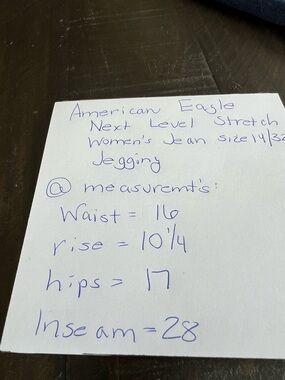 American Eagle
Next Level Stretch
Women's Jean size 14/32
Jegging
@ measuremt's:
Waist = 16
rise = 10 1/4
hips = 17
Inseam = 28